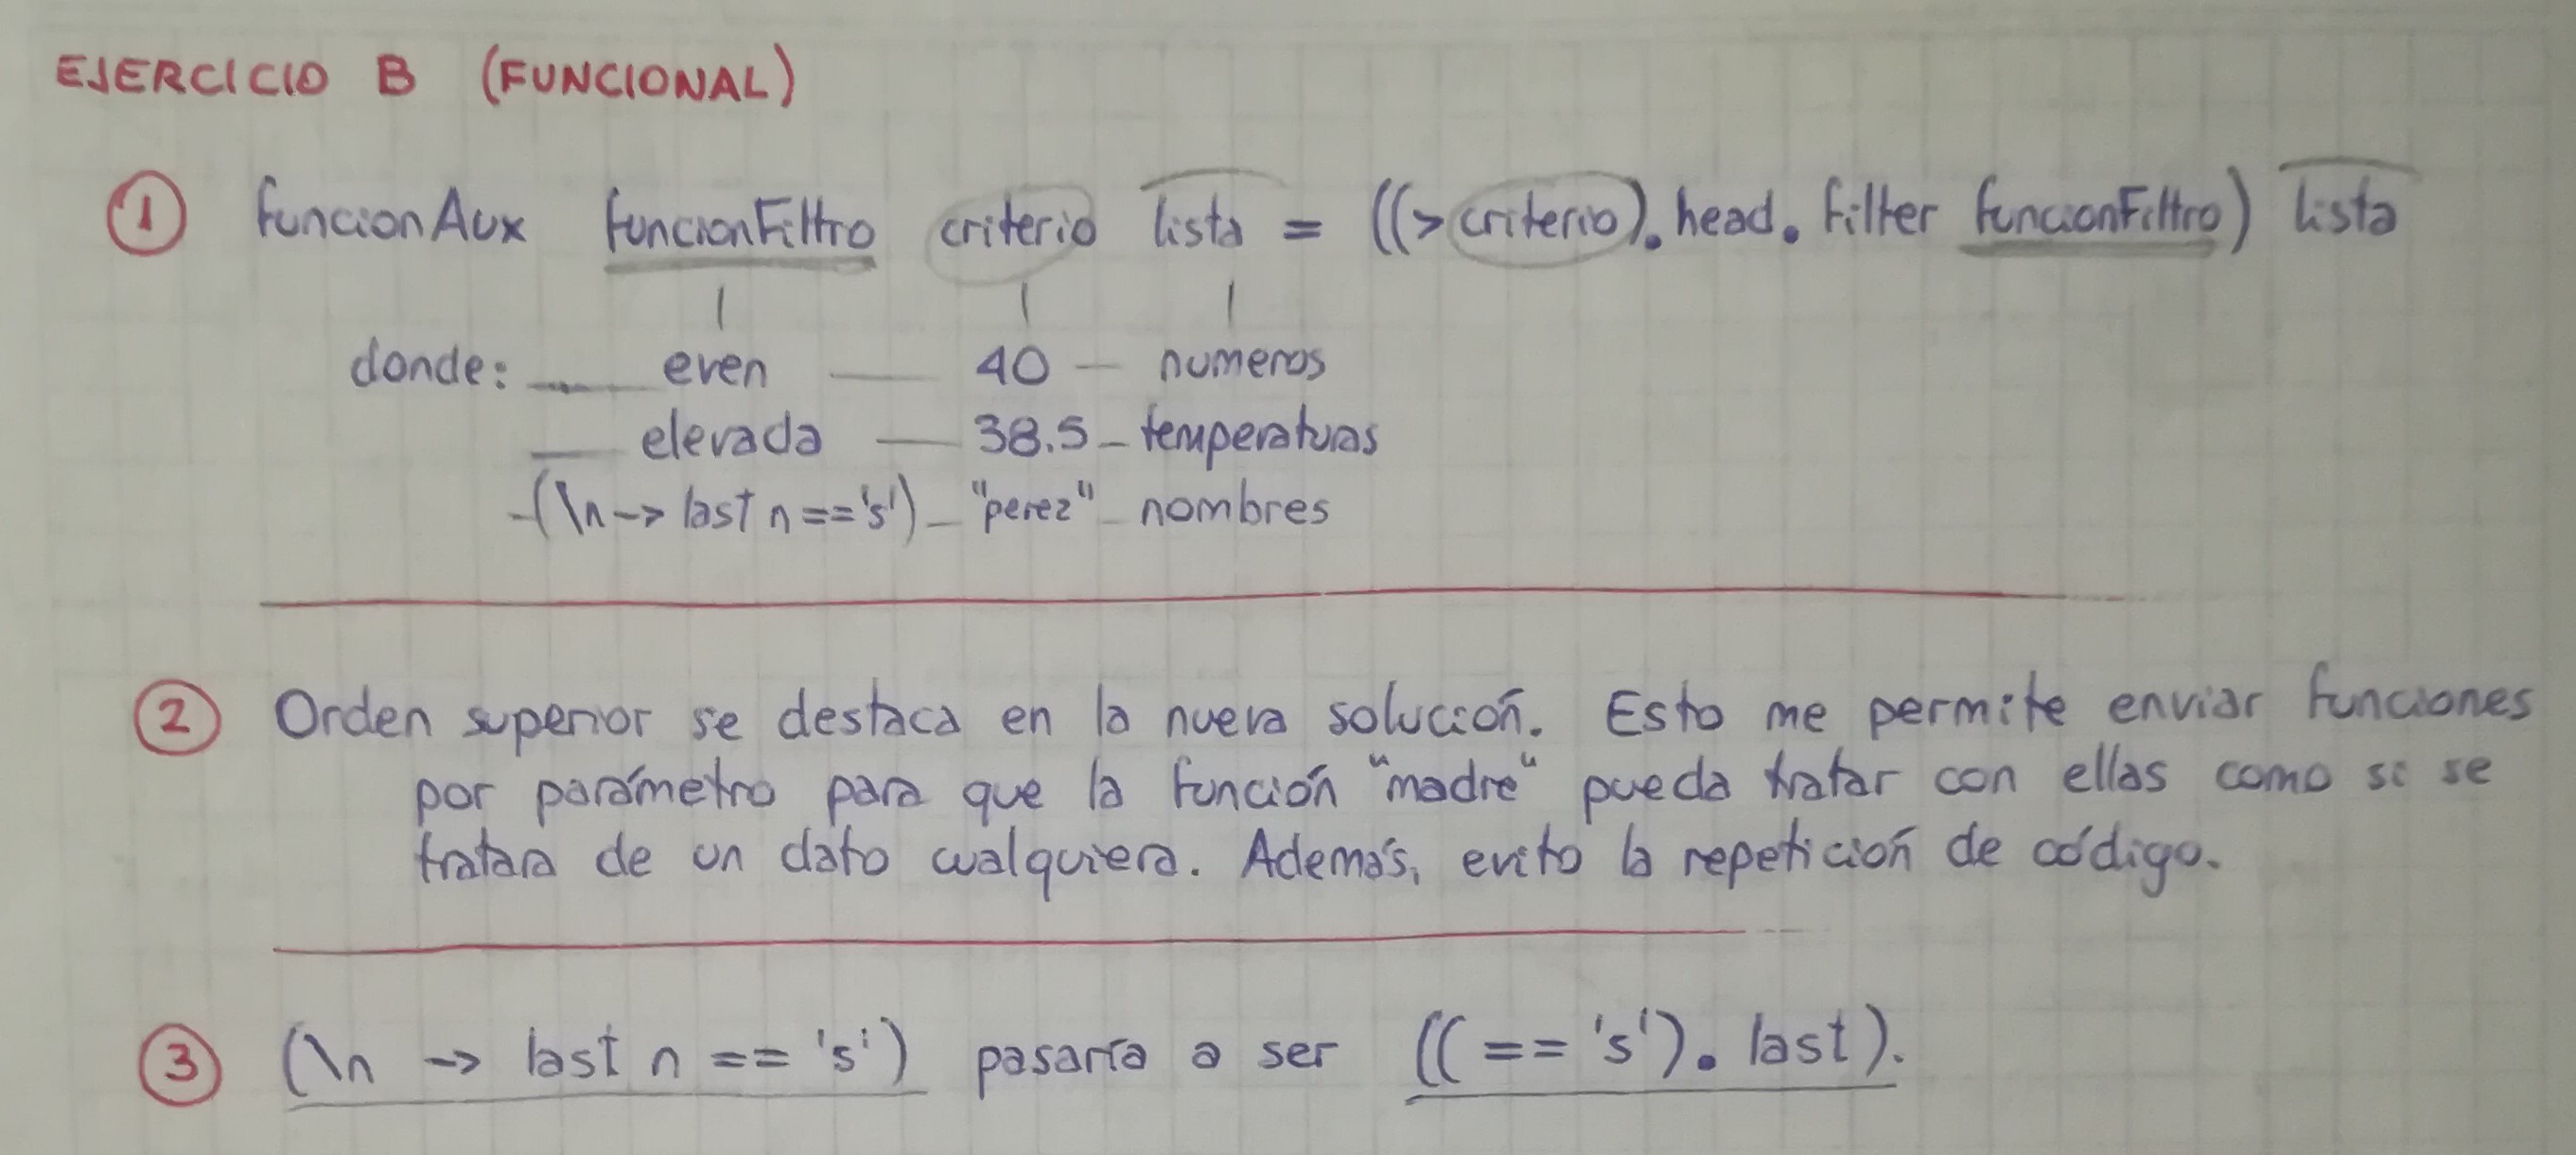 EJERCICIO B (FUNCIONAL)
1 funcionAux funcionFiltro criterio lista = ((>criterio).head.filter funcionFiltro) lista
donde: even 40 numeros
elevada 38.5 temperaturas
(\n -> last n == 's') "perez" nombres
2 Orden superior se destaca en la nueva solución. Esto me permite enviar funciones
por parámetro para que la función "madre" pueda tratar con ellas como si se
tratara de un dato cualquiera. Además, evito la repetición de código.
3 (\n -> last n == 's') pasaría a ser ((== 's'). last).